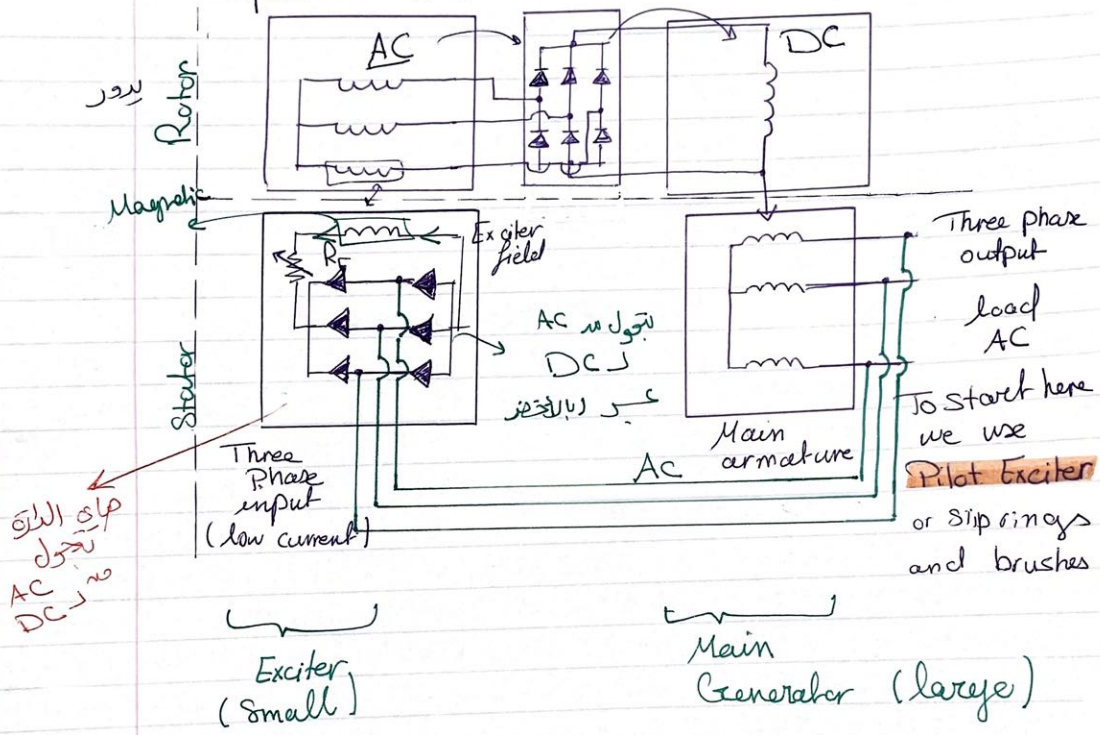 AC
DC
Rotor
يدور
Magnetic
Exciter
field
R_F
Stator
بتحول من AC
لـ DC
Three phase
output
load
AC
To start here
we use
Pilot Exciter
or slip rings
and brushes
Main
armature
AC
Three
Phase
input
(low current)
هاي الدارة
تحول
من AC
لـ DC
Exciter
(Small)
Main
Generator (large)